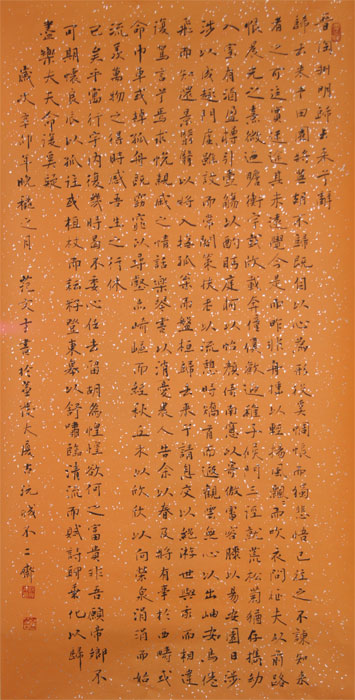 晋陶渊明歸去来兮辞
歸去来兮田園将蕪胡不歸既自以心為形役奚惆悵而獨悲悟已往之不諫知来
者之可追實迷途其未遠覺今是而昨非舟摇以輕颺風飄而吹衣問征夫以前路
恨晨光之熹微迺瞻衡宇載欣載奔僮僕歡迎稚子候門三逕就荒松菊猶存攜幼
入室有酒盈樽引壺觴以自酌眄庭柯以怡顔倚南窗以寄傲審容膝以易安園日
涉以成趣門雖設而常關策扶老以流憩時矯首而遐觀雲無心以出岫鳥倦
飛而知還景翳翳以將入撫孤松而盤桓歸去来兮請息交以絕游世與我而相違
復駕言兮焉求悅親戚之情話樂琴書以消憂農人告余以春及將有事於西疇或
命巾車或棹孤舟既窈窕以尋壑亦崎嶇而經丘木欣欣以向榮泉涓涓而始
流羡萬物之得時感吾生之行休
已矣乎寓形宇内復幾時曷不委心任去留胡為惶惶欲何之富貴非吾願帝鄉不
可期懷良辰以孤往或植杖而耘耔登東皋以舒嘯臨清流而賦詩聊乘化以歸
盡樂夫天命復奚疑
歲次辛卯年晚秋之月 范文子書於大廈古沅城不二齋